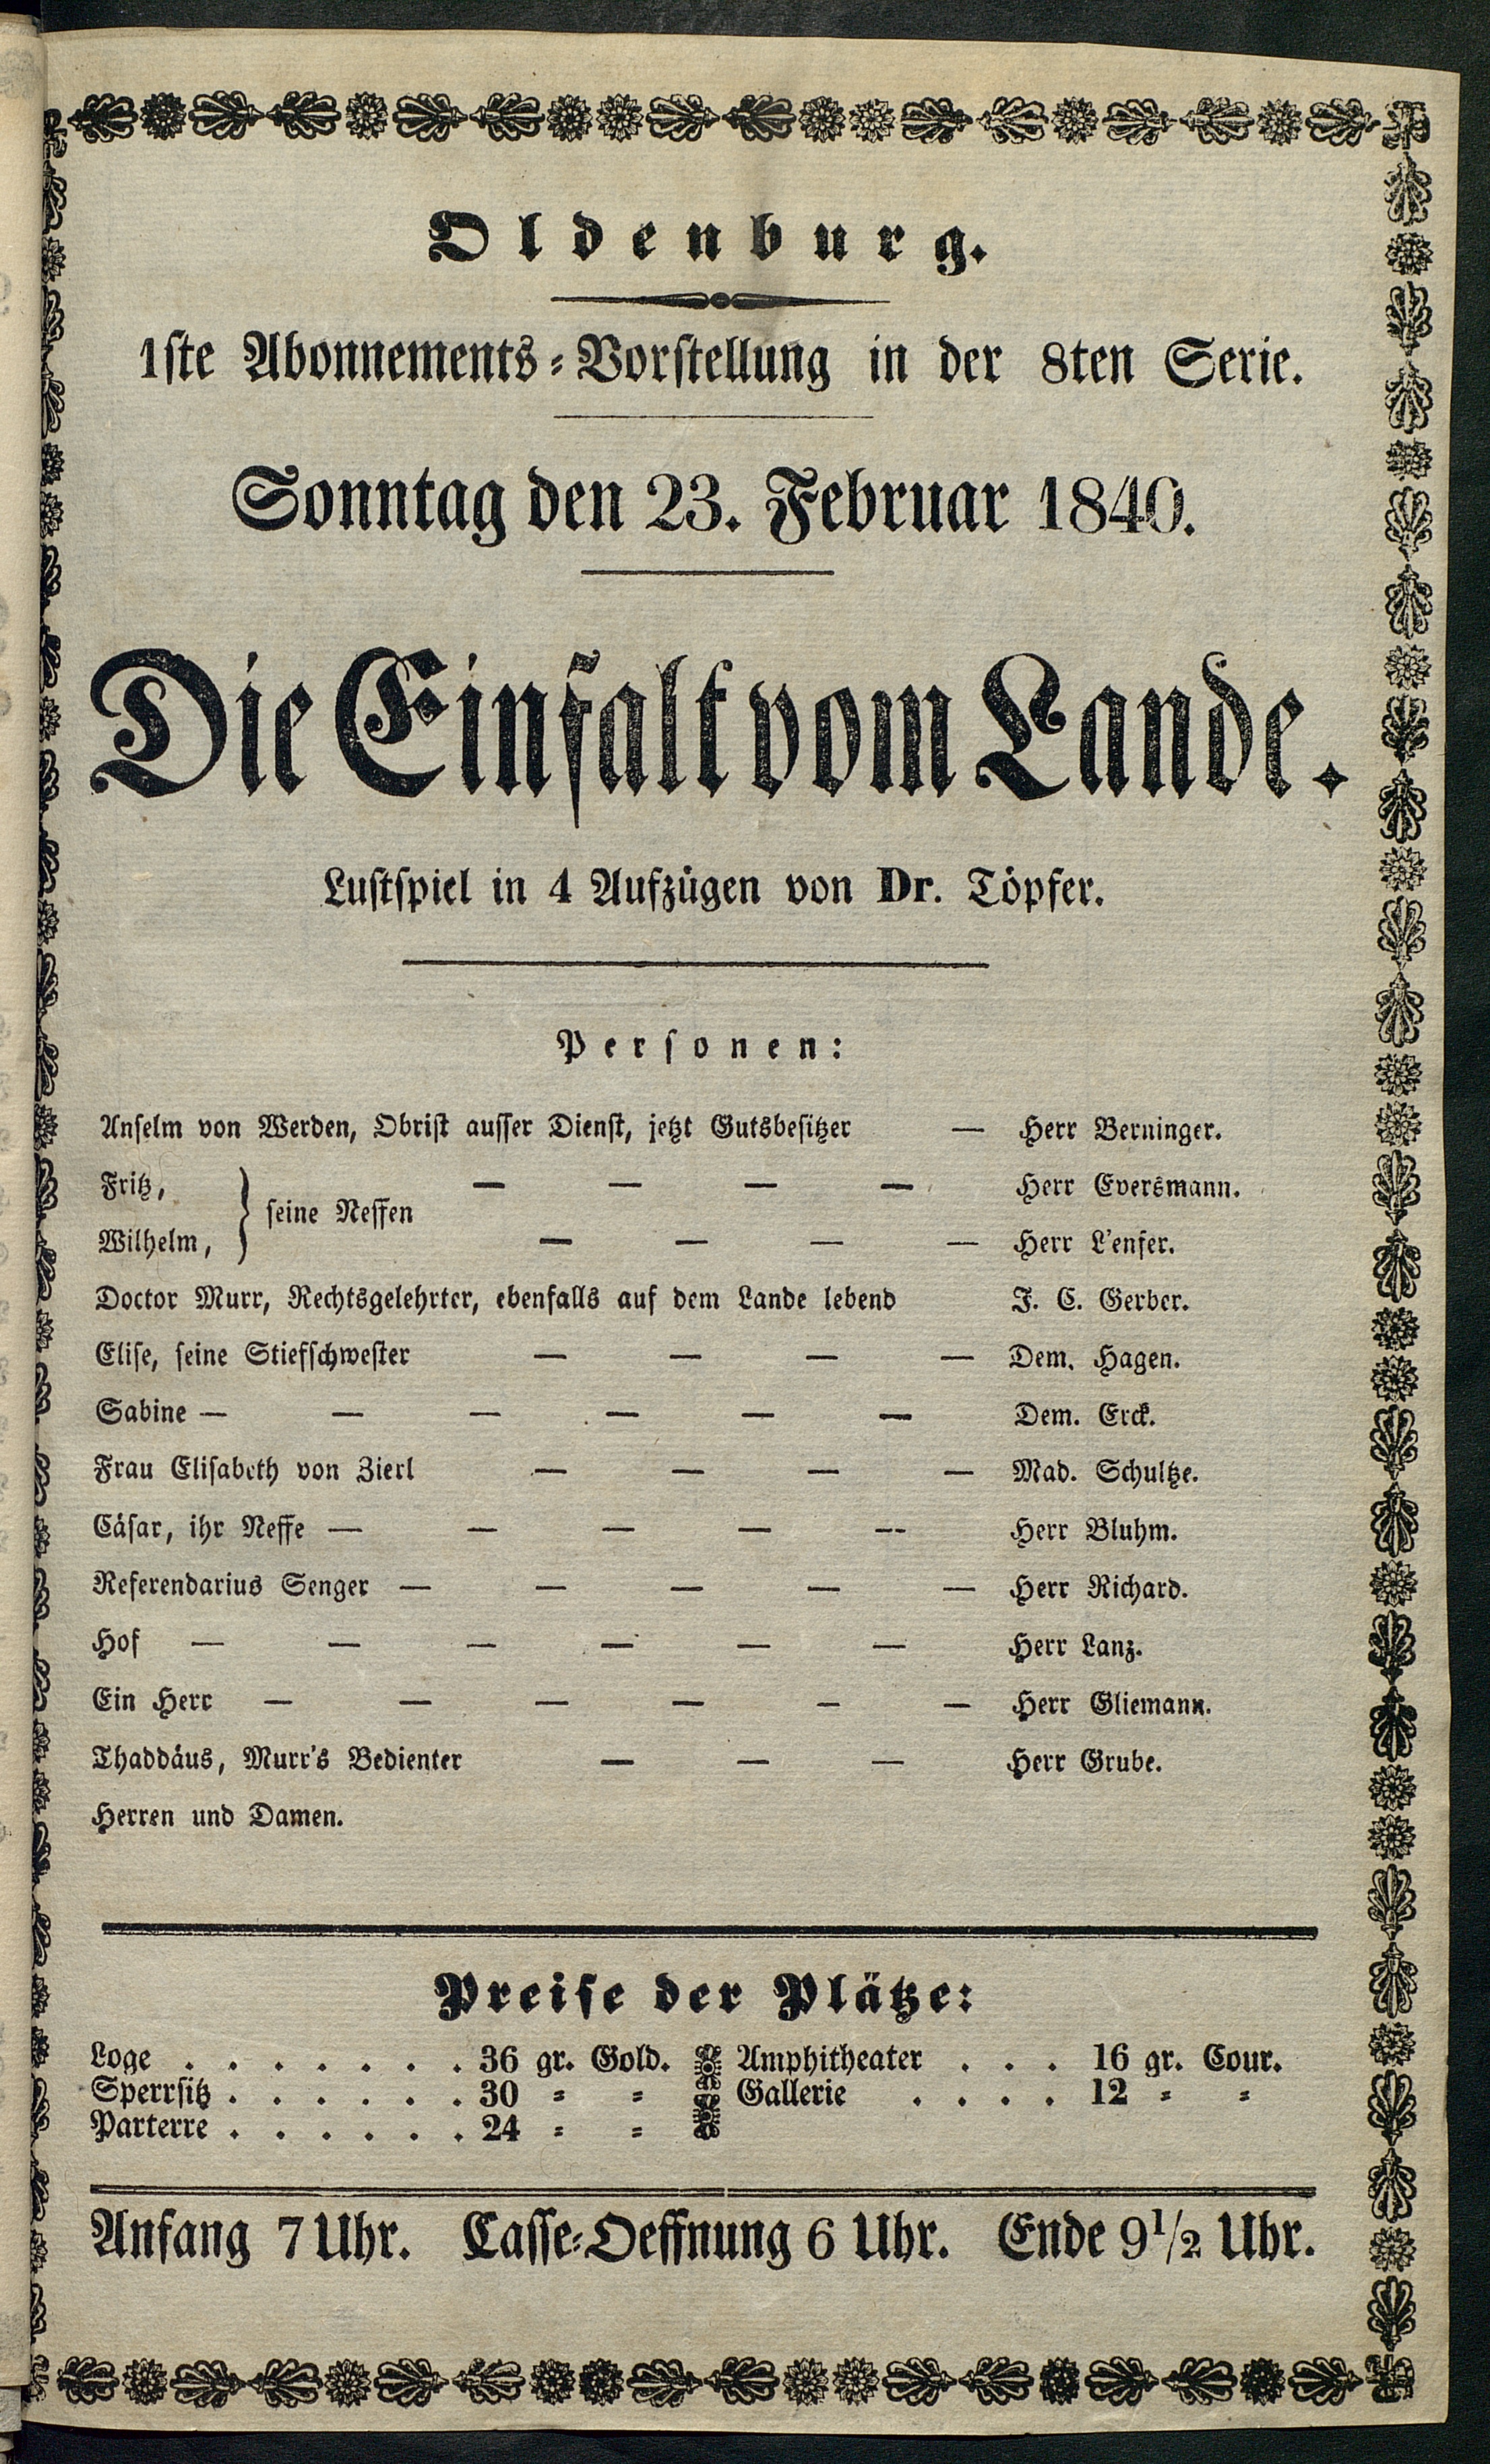 Oldenburg.
1ste Abonnements-Vorstellung in der 8ten Serie.
Sonntag den 23. Februar 1840.
Die Einfalt vom Lande.
Lustspiel in 4 Aufzügen von Dr. Töpfer.
Personen:
Anselm von Werden, Obrist ausser Dienst, jetzt Gutsbesitzer — Herr Berninger.
Fritz, — — — — Herr Eversmann.
} seine Neffen
Wilhelm, — — — — Herr L'enfer.
Doctor Murr, Rechtsgelehrter, ebenfalls auf dem Lande lebend J. C. Gerber.
Elise, seine Stiefschwester — — — — Dem. Hagen.
Sabine — — — — — — Dem. Erck.
Frau Elisabeth von Zierl — — — — Mad. Schultze.
Cäsar, ihr Neffe — — — — — Herr Bluhm.
Referendarius Senger — — — — — Herr Richard.
Hof — — — — — — Herr Lanz.
Ein Herr — — — — — — Herr Gliemann.
Thaddäus, Murr's Bedienter — — — Herr Grube.
Herren und Damen.
Preise der Plätze:
Loge . . . . . . . 36 gr. Gold. Amphitheater . . . 16 gr. Cour.
Sperrsitz . . . . . . 30 = = Gallerie . . . . 12 = =
Parterre . . . . . . 24 = =
Anfang 7 Uhr. Casse-Oeffnung 6 Uhr. Ende 9½ Uhr.